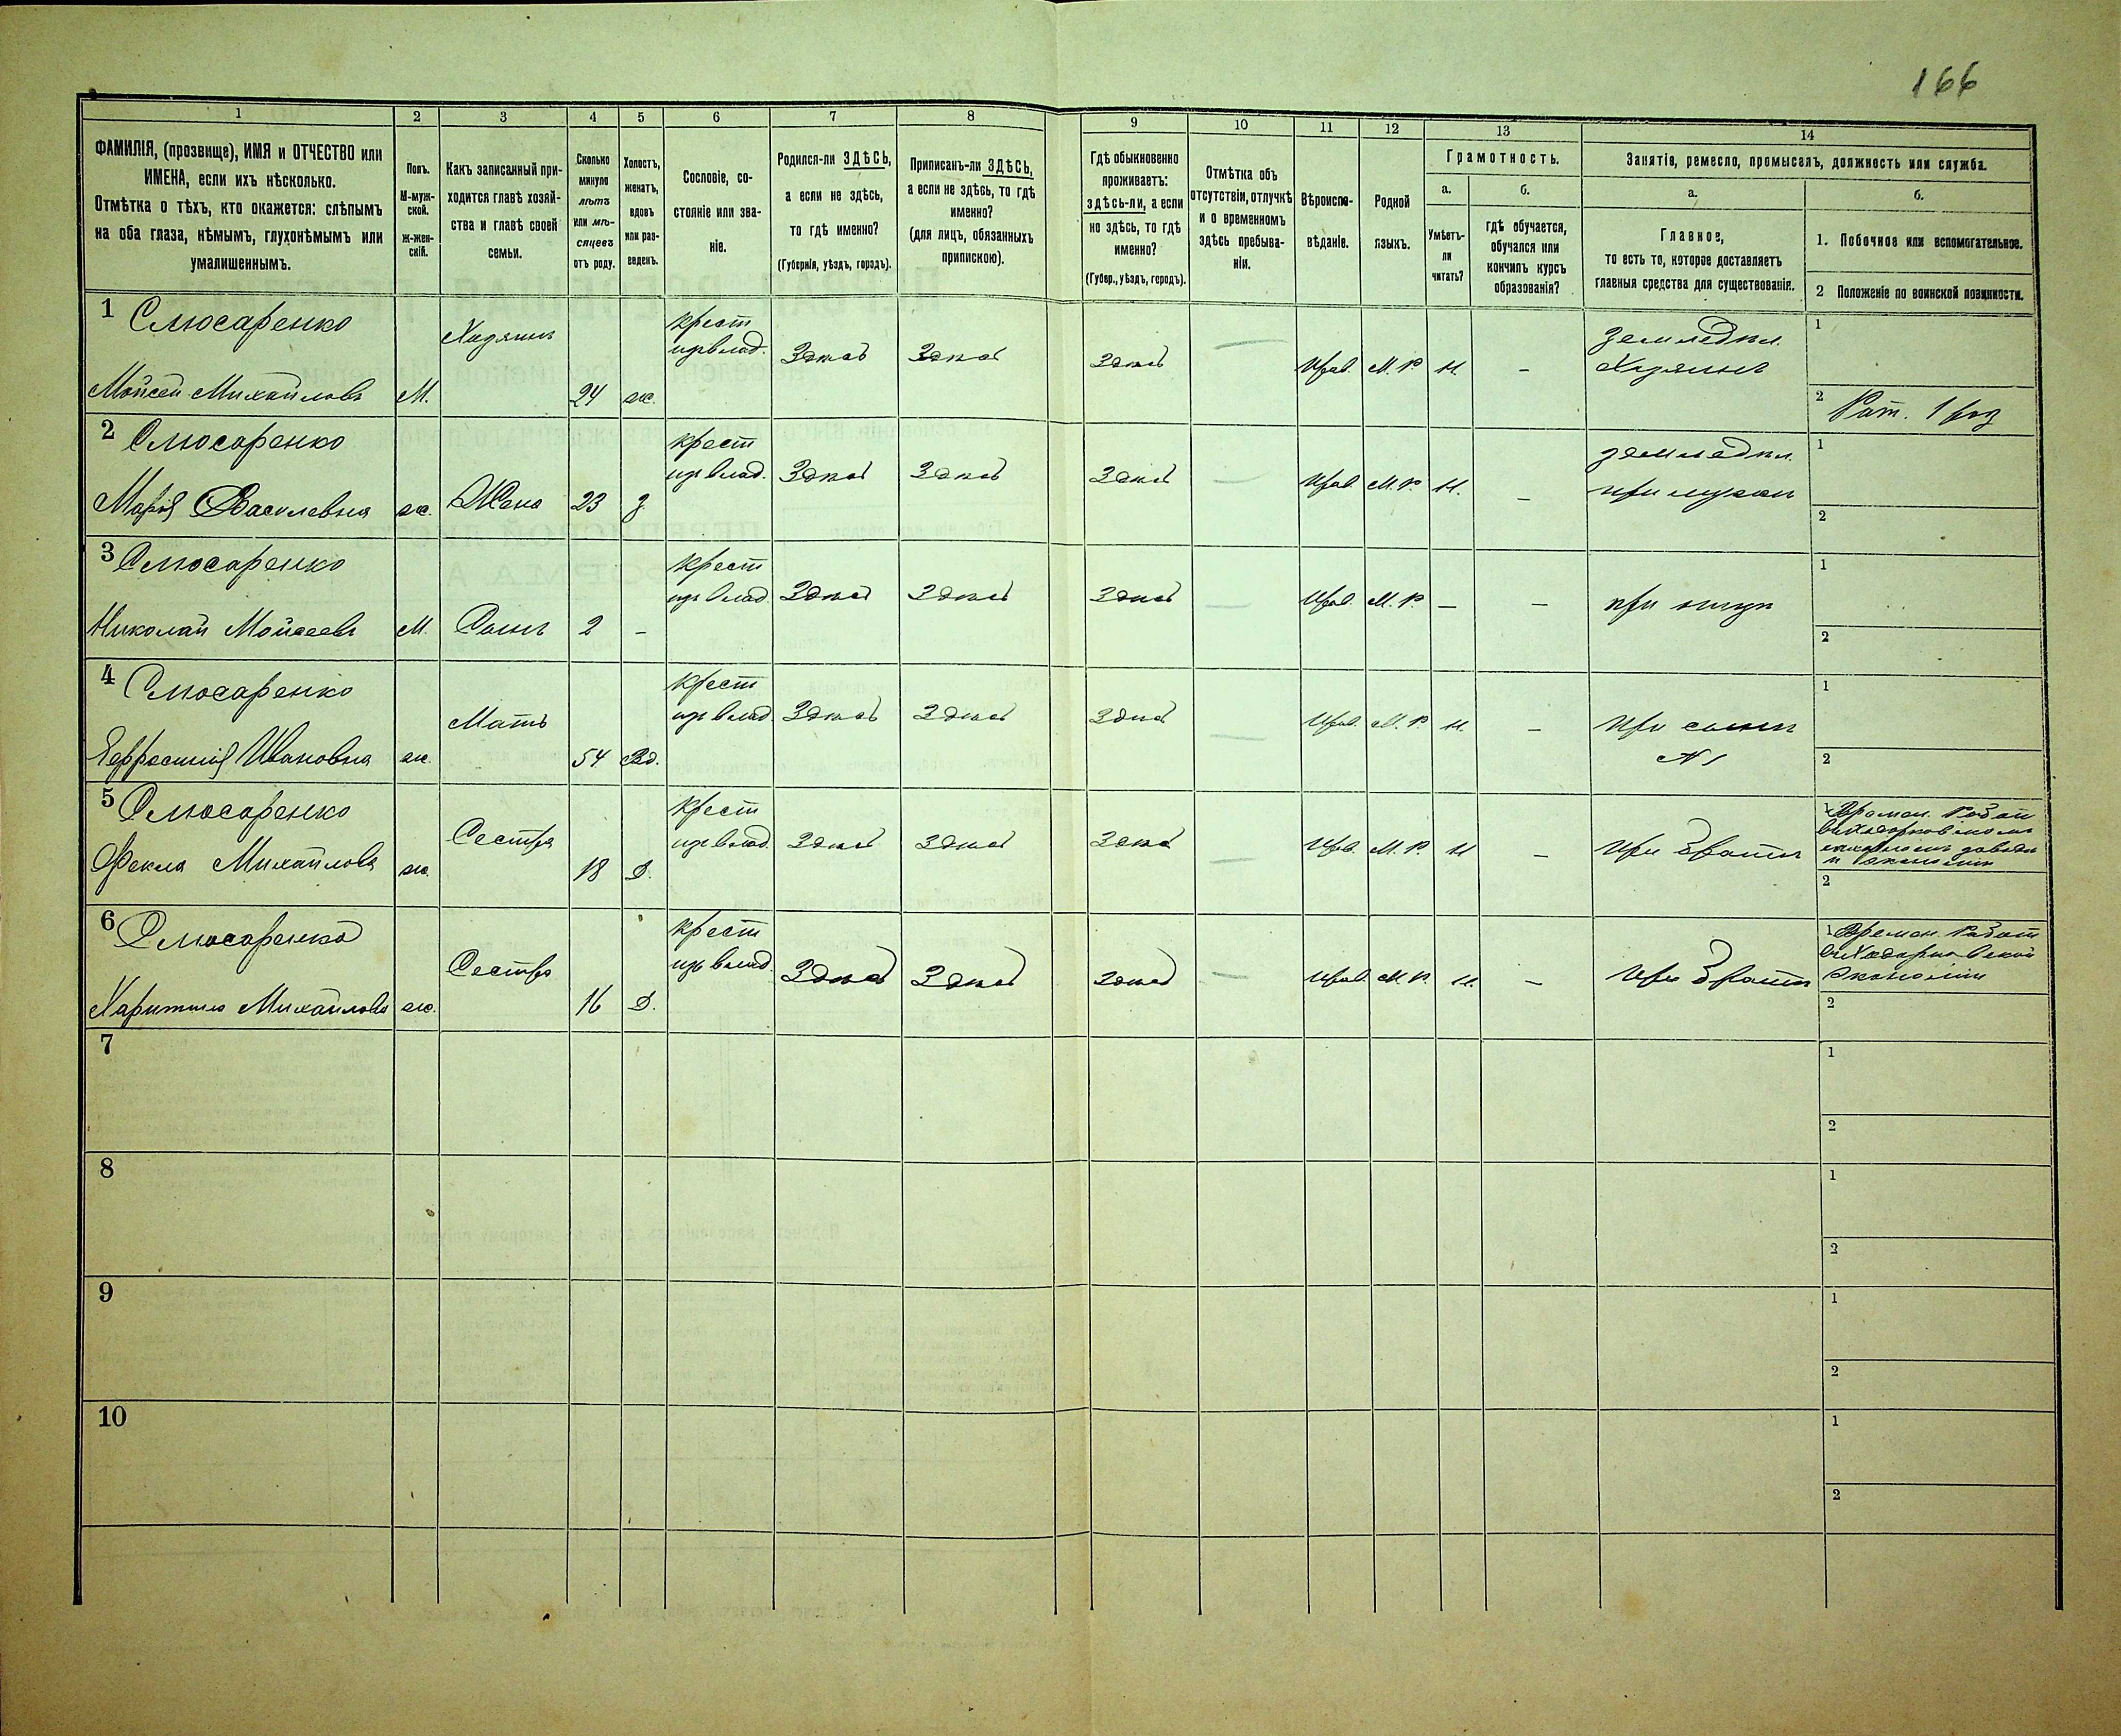 166
1
2
3
4
5
6
7
8
9
10
11
12
13
14
ФАМИЛІЯ, (прозвище), ИМЯ и ОТЧЕСТВО или
ИМЕНА, если ихъ нѣсколько.
Отмѣтка о тѣхъ, кто окажется: слѣпымъ
на оба глаза, нѣмымъ, глухонѣмымъ или
умалишеннымъ.
Полъ.
М-муж-
ской.
ж-жен-
скій.
Какъ записанный при-
ходится главѣ хозяй-
ства и главѣ своей
семьи.
Сколько
минуло
лѣтъ
или мѣ-
сяцевъ
отъ роду.
Холостъ,
женатъ,
вдовъ
или раз-
веденъ.
Сословіе, со-
стояніе или зва-
ніе.
Родился-ли ЗДѢСЬ,
а если не здѣсь,
то гдѣ именно?
(Губернія, уѣздъ, городъ).
Приписанъ-ли ЗДѢСЬ,
а если не здѣсь, то гдѣ
именно?
(для лицъ, обязанныхъ
припискою).
Гдѣ обыкновенно
проживаетъ:
здѣсь-ли, а если
не здѣсь, то гдѣ
именно?
(Губер., уѣздъ, городъ).
Отмѣтка объ
отсутствіи, отлучкѣ
и о временномъ
здѣсь пребыва-
ніи.
Вѣроиспо-
вѣданіе.
Родной
языкъ.
Грамотность.
а.
б.
Умѣетъ-
ли
читать?
гдѣ обучается,
обучался или
кончилъ курсъ
образованія?
Занятіе, ремесло, промыселъ, должность или служба.
а.
б.
Главное,
то есть то, которое доставляетъ
главныя средства для существованія.
1. Побочное или вспомогательное.
2 Положеніе по воинской повинности.
1 Слюсаренко
Мойсей Михайловъ
М.
Хазяинъ
24
ж.
крест
изъ влад.
Здѣсь
Здѣсь
Здѣсь
—
Прав.
М. Р.
Н.
—
земледѣл.
Хазяинъ
1
2 Рат. 1 раз
2 Слюсаренко
Марія Василевна
ж.
Жена
23
з.
крест
изъ влад.
Здѣсь
Здѣсь
Здѣсь
—
Прав.
М. Р.
Н.
—
земледѣл.
при мужѣ
1
2
3 Слюсаренко
Николай Мойсеевъ
М.
Сынъ
2
—
крест
изъ влад.
Здѣсь
Здѣсь
Здѣсь
—
Прав.
М. Р.
—
—
при отцѣ
1
2
4 Слюсаренко
Ефросинія Ивановна
ж.
Мать
54
Вд.
крест
изъ влад.
Здѣсь
Здѣсь
Здѣсь
—
Прав.
М. Р.
Н.
—
при сынѣ
№ 1
1
2
5 Слюсаренко
Фекла Михайлова
ж.
Сестра
18
Д.
крест
изъ влад.
Здѣсь
Здѣсь
Здѣсь
—
Прав.
М. Р.
Н
—
При братѣ
1 Времен. Работ
въ Ходорковскомъ
сахарномъ заводѣ
и экономіи
2
6 Слюсаренко
Харитина Михайлова
ж.
Сестра
16
Д.
крест
изъ влад.
Здѣсь
Здѣсь
Здѣсь
—
Прав.
М. Р.
Н.
—
При братѣ
1 Времен. Работ
въ Ходорковской
экономіи
2
7
1
2
8
1
2
9
1
2
10
1
2